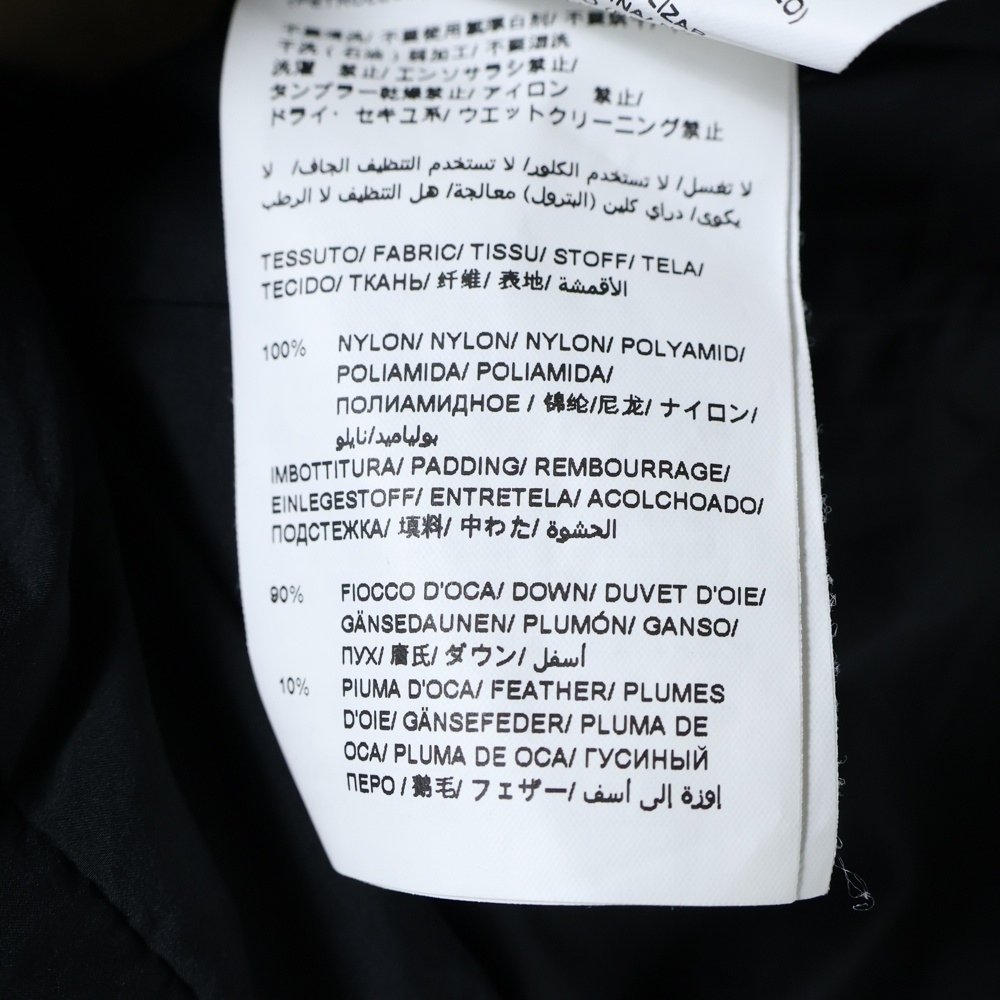 干洗(石油)弱加工/不要湿洗
洗濯 禁止/エンソサラシ禁止/
タンブラー乾燥禁止/アイロン 禁止/
ドライ· セキユ系/ウエットクリーニング禁止
لا تغسل/ لا تستخدم الكلور/ لا تستخدم التنظيف الجاف/ لا
يكوى/ دراي كلين (البترول) معالجة/ هل التنظيف لا الرطب
TESSUTO/ FABRIC/ TISSU/ STOFF/ TELA/
TECIDO/ ТКАНЬ/ 纤维/ 表地/ الأقمشة
100% NYLON/ NYLON/ NYLON/ POLYAMID/
POLIAMIDA/ POLIAMIDA/
ПОЛИАМИДНОЕ / 锦纶/尼龙/ ナイロン/
بولياميد/نايلو
IMBOTTITURA/ PADDING/ REMBOURRAGE/
EINLEGESTOFF/ ENTRETELA/ ACOLCHOADO/
ПОДСТЕЖКА/ 填料/ 中わた/ الحشوة
90% FIOCCO D'OCA/ DOWN/ DUVET D'OIE/
GÄNSEDAUNEN/ PLUMÓN/ GANSO/
ПУХ/ ダウン/ أسفل
10% PIUMA D'OCA/ FEATHER/ PLUMES
D'OIE/ GÄNSEFEDER/ PLUMA DE
OCA/ PLUMA DE OCA/ ГУСИНЫЙ
ПЕРО / 鹅毛/ フェザー/ إوزة إلى أسف